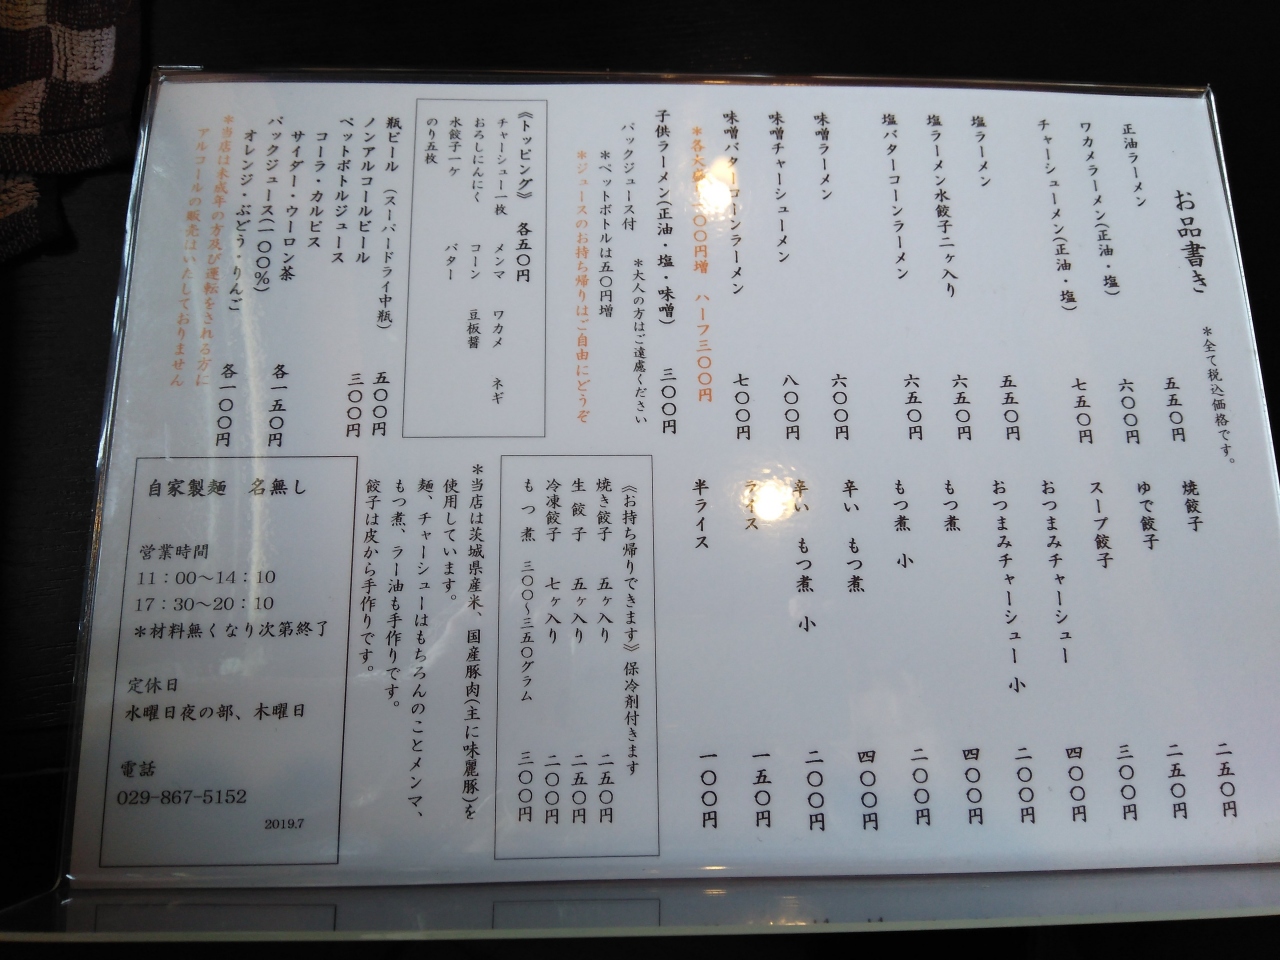 お品書き ＊全て税込価格です。
正油ラーメン 五五〇円
ワカメラーメン(正油・塩) 六〇〇円
チャーシューメン(正油・塩) 七五〇円
塩ラーメン 五五〇円
塩ラーメン水餃子二ヶ入り 六五〇円
塩バターコーンラーメン 六五〇円
味噌ラーメン 六〇〇円
味噌チャーシューメン 八〇〇円
味噌バターコーンラーメン 七〇〇円
＊各大 〇〇円増 ハーフ三〇〇円
子供ラーメン(正油・塩・味噌) 三〇〇円
パックジュース付 ＊大人の方はご遠慮ください
＊ペットボトルは五〇円増
＊ジュースのお持ち帰りはご自由にどうぞ
《トッピング》 各五〇円
チャーシュー一枚 メンマ ワカメ ネギ
おろしにんにく コーン 豆板醤
水餃子一ヶ バター
のり五枚
瓶ビール (スーパードライ中瓶) 五〇〇円
ノンアルコールビール 三〇〇円
ペットボトルジュース
コーラ・カルピス
サイダー・ウーロン茶 各一五〇円
パックジュース(一〇〇%)
オレンジ・ぶどう・りんご 各一〇〇円
＊当店は未成年の方及び運転をされる方に
アルコールの販売はいたしておりません
焼餃子 二五〇円
ゆで餃子 二五〇円
スープ餃子 三〇〇円
おつまみチャーシュー 四〇〇円
おつまみチャーシュー 小 二〇〇円
もつ煮 四〇〇円
もつ煮 小 二〇〇円
辛い もつ煮 四〇〇円
辛い もつ煮 小 二〇〇円
ライス 一五〇円
半ライス 一〇〇円
《お持ち帰りできます》保冷剤付きます
焼き餃子 五ヶ入り 二五〇円
生餃子 五ヶ入り 二五〇円
冷凍餃子 七ヶ入り 二〇〇円
もつ煮 三〇〇～三五〇グラム 三〇〇円
＊当店は茨城県産米、国産豚肉(主に味麗豚)を
使用しています。
麺、チャーシューはもちろんのことメンマ、
もつ煮、ラー油も手作りです。
餃子は皮から手作りです。
自家製麺 名無し
営業時間
11：00～14：10
17：30～20：10
＊材料無くなり次第終了
定休日
水曜日夜の部、木曜日
電話
029-867-5152
2019.7